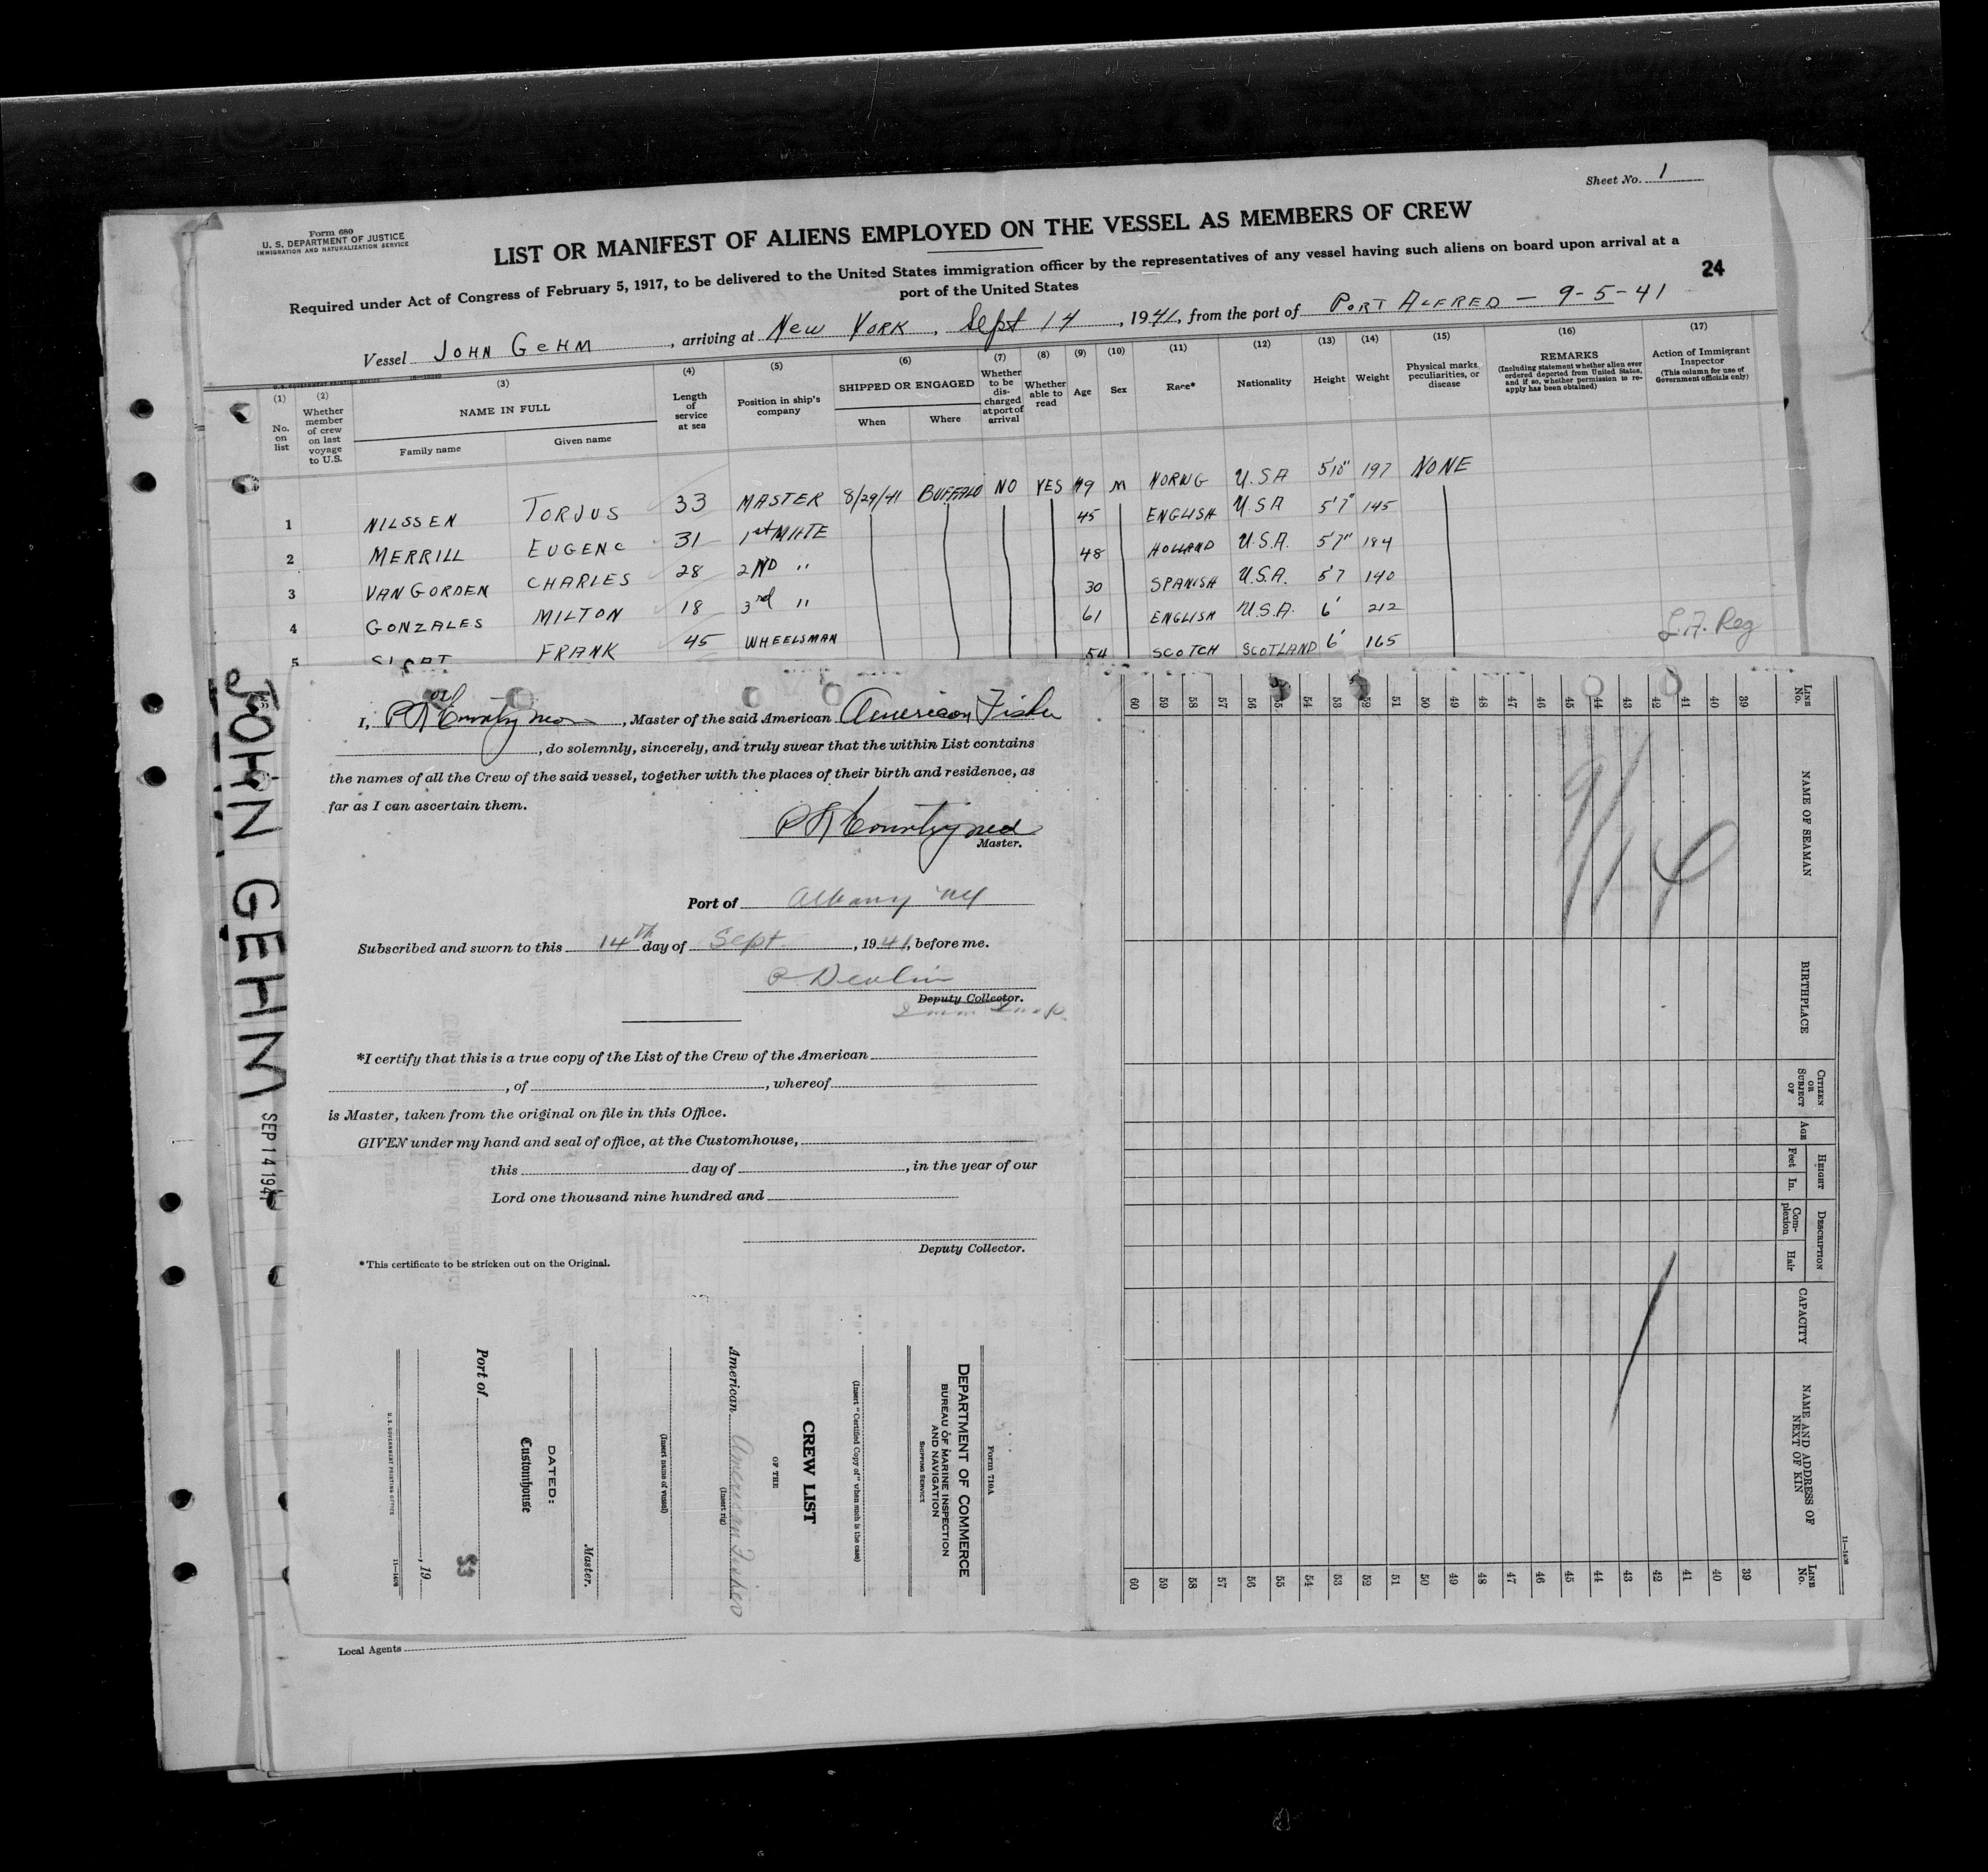 Sheet No. 1
Form 680
U. S. DEPARTMENT OF JUSTICE
IMMIGRATION AND NATURALIZATION SERVICE
LIST OR MANIFEST OF ALIENS EMPLOYED ON THE VESSEL AS MEMBERS OF CREW
Required under Act of Congress of February 5, 1917, to be delivered to the United States immigration officer by the representatives of any vessel having such aliens on board upon arrival at a
port of the United States
24
Vessel JOHN GEHM, arriving at NEW YORK, Sept 14, 1941, from the port of PORT ALFRED — 9-5-41
(1) (2) (3) (4) (5) (6) (7) (8) (9) (10) (11) (12) (13) (14) (15) (16) (17)
No. on list
Whether member of crew on last voyage to U.S.
NAME IN FULL
Family name Given name
Length of service at sea
Position in ship's company
SHIPPED OR ENGAGED
When Where
Whether to be discharged at port of arrival
Whether able to read
Age Sex Race* Nationality Height Weight
Physical marks, peculiarities, or disease
REMARKS
(Including statement whether alien ever ordered deported from United States, and if so, whether permission to reapply has been obtained)
Action of Immigrant Inspector
(This column for use of Government officials only)
1 NILSSEN TORJUS 33 MASTER 8/29/41 BUFFALO NO YES 49 M NORWG U.S.A 5'10" 197 NONE
2 MERRILL EUGENE 31 1st MATE 45 ENGLISH U.S.A 5'7" 145
3 VAN GORDEN CHARLES 28 2ND " 48 HOLLAND U.S.A. 5'7" 184
4 GONZALES MILTON 18 3rd " 30 SPANISH U.S.A. 5'7 140
5 FRANK 45 WHEELSMAN 61 ENGLISH U.S.A. 6' 212
54 SCOTCH SCOTLAND 6' 165
JOHN GEHM
SEP 14 194
I, , Master of the said American American Fisher
, do solemnly, sincerely, and truly swear that the within List contains
the names of all the Crew of the said vessel, together with the places of their birth and residence, as
far as I can ascertain them.
Master.
Port of Albany NY
Subscribed and sworn to this 14th day of Sept, 1941, before me.
Devlin
Deputy Collector.
*I certify that this is a true copy of the List of the Crew of the American
, of , whereof
is Master, taken from the original on file in this Office.
GIVEN under my hand and seal of office, at the Customhouse,
this day of , in the year of our
Lord one thousand nine hundred and
Deputy Collector.
*This certificate to be stricken out on the Original.
Form 710A
DEPARTMENT OF COMMERCE
BUREAU OF MARINE INSPECTION
AND NAVIGATION
SHIPPING SERVICE
(Insert "Certified Copy of" when such is the case)
CREW LIST
OF THE
American American Fisher
(Insert rig)
(Insert name of vessel)
Master.
DATED:
Customhouse
Port of
53
, 19
U. S. GOVERNMENT PRINTING OFFICE 11—1408
LINE No.
NAME OF SEAMAN
BIRTHPLACE
CITIZEN OR SUBJECT OF
AGE
HEIGHT
Feet In.
DESCRIPTION
Complexion Hair
CAPACITY
NAME AND ADDRESS OF NEXT OF KIN
LINE No.
11—1408
39 39
40 40
41 41
42 42
43 43
44 44
45 45
46 46
47 47
48 48
49 49
50 50
51 51
52 52
53 53
54 54
55 55
56 56
57 57
58 58
59 59
60 60
9/14
Local Agents